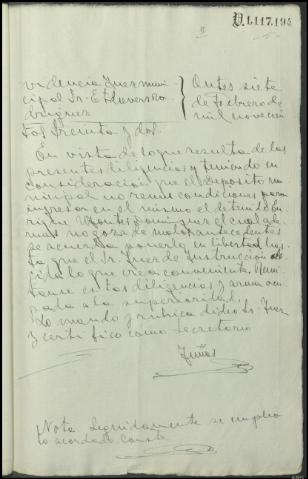 D.1.117.195
videncia Juez muni
cipal Sr. Echeverria
Rodriguez
Antes siete
de Febrero de
mil novecien
tos treinta y dos.
En vista de lo que resulta de las
presentes diligencias y teniendo en
consideracion que el deposito mu
nicipal no reune condiciones para
ingresar en el mismo el detenido En
rique Montes Dominguez el cual ade
mas no goza de malos antecedentes
se acuerda ponerlo en libertad has
ta que el Sr Juez de Instruccion de
cida lo que crea conveniente. Remi
tanse estas diligencias y arma ocu
pada a la superioridad.
Lo mando y rubrica dicho Sr. Juez
y certifico como Secretario
Nota Seguidamente se cumple
lo acordado. Conste